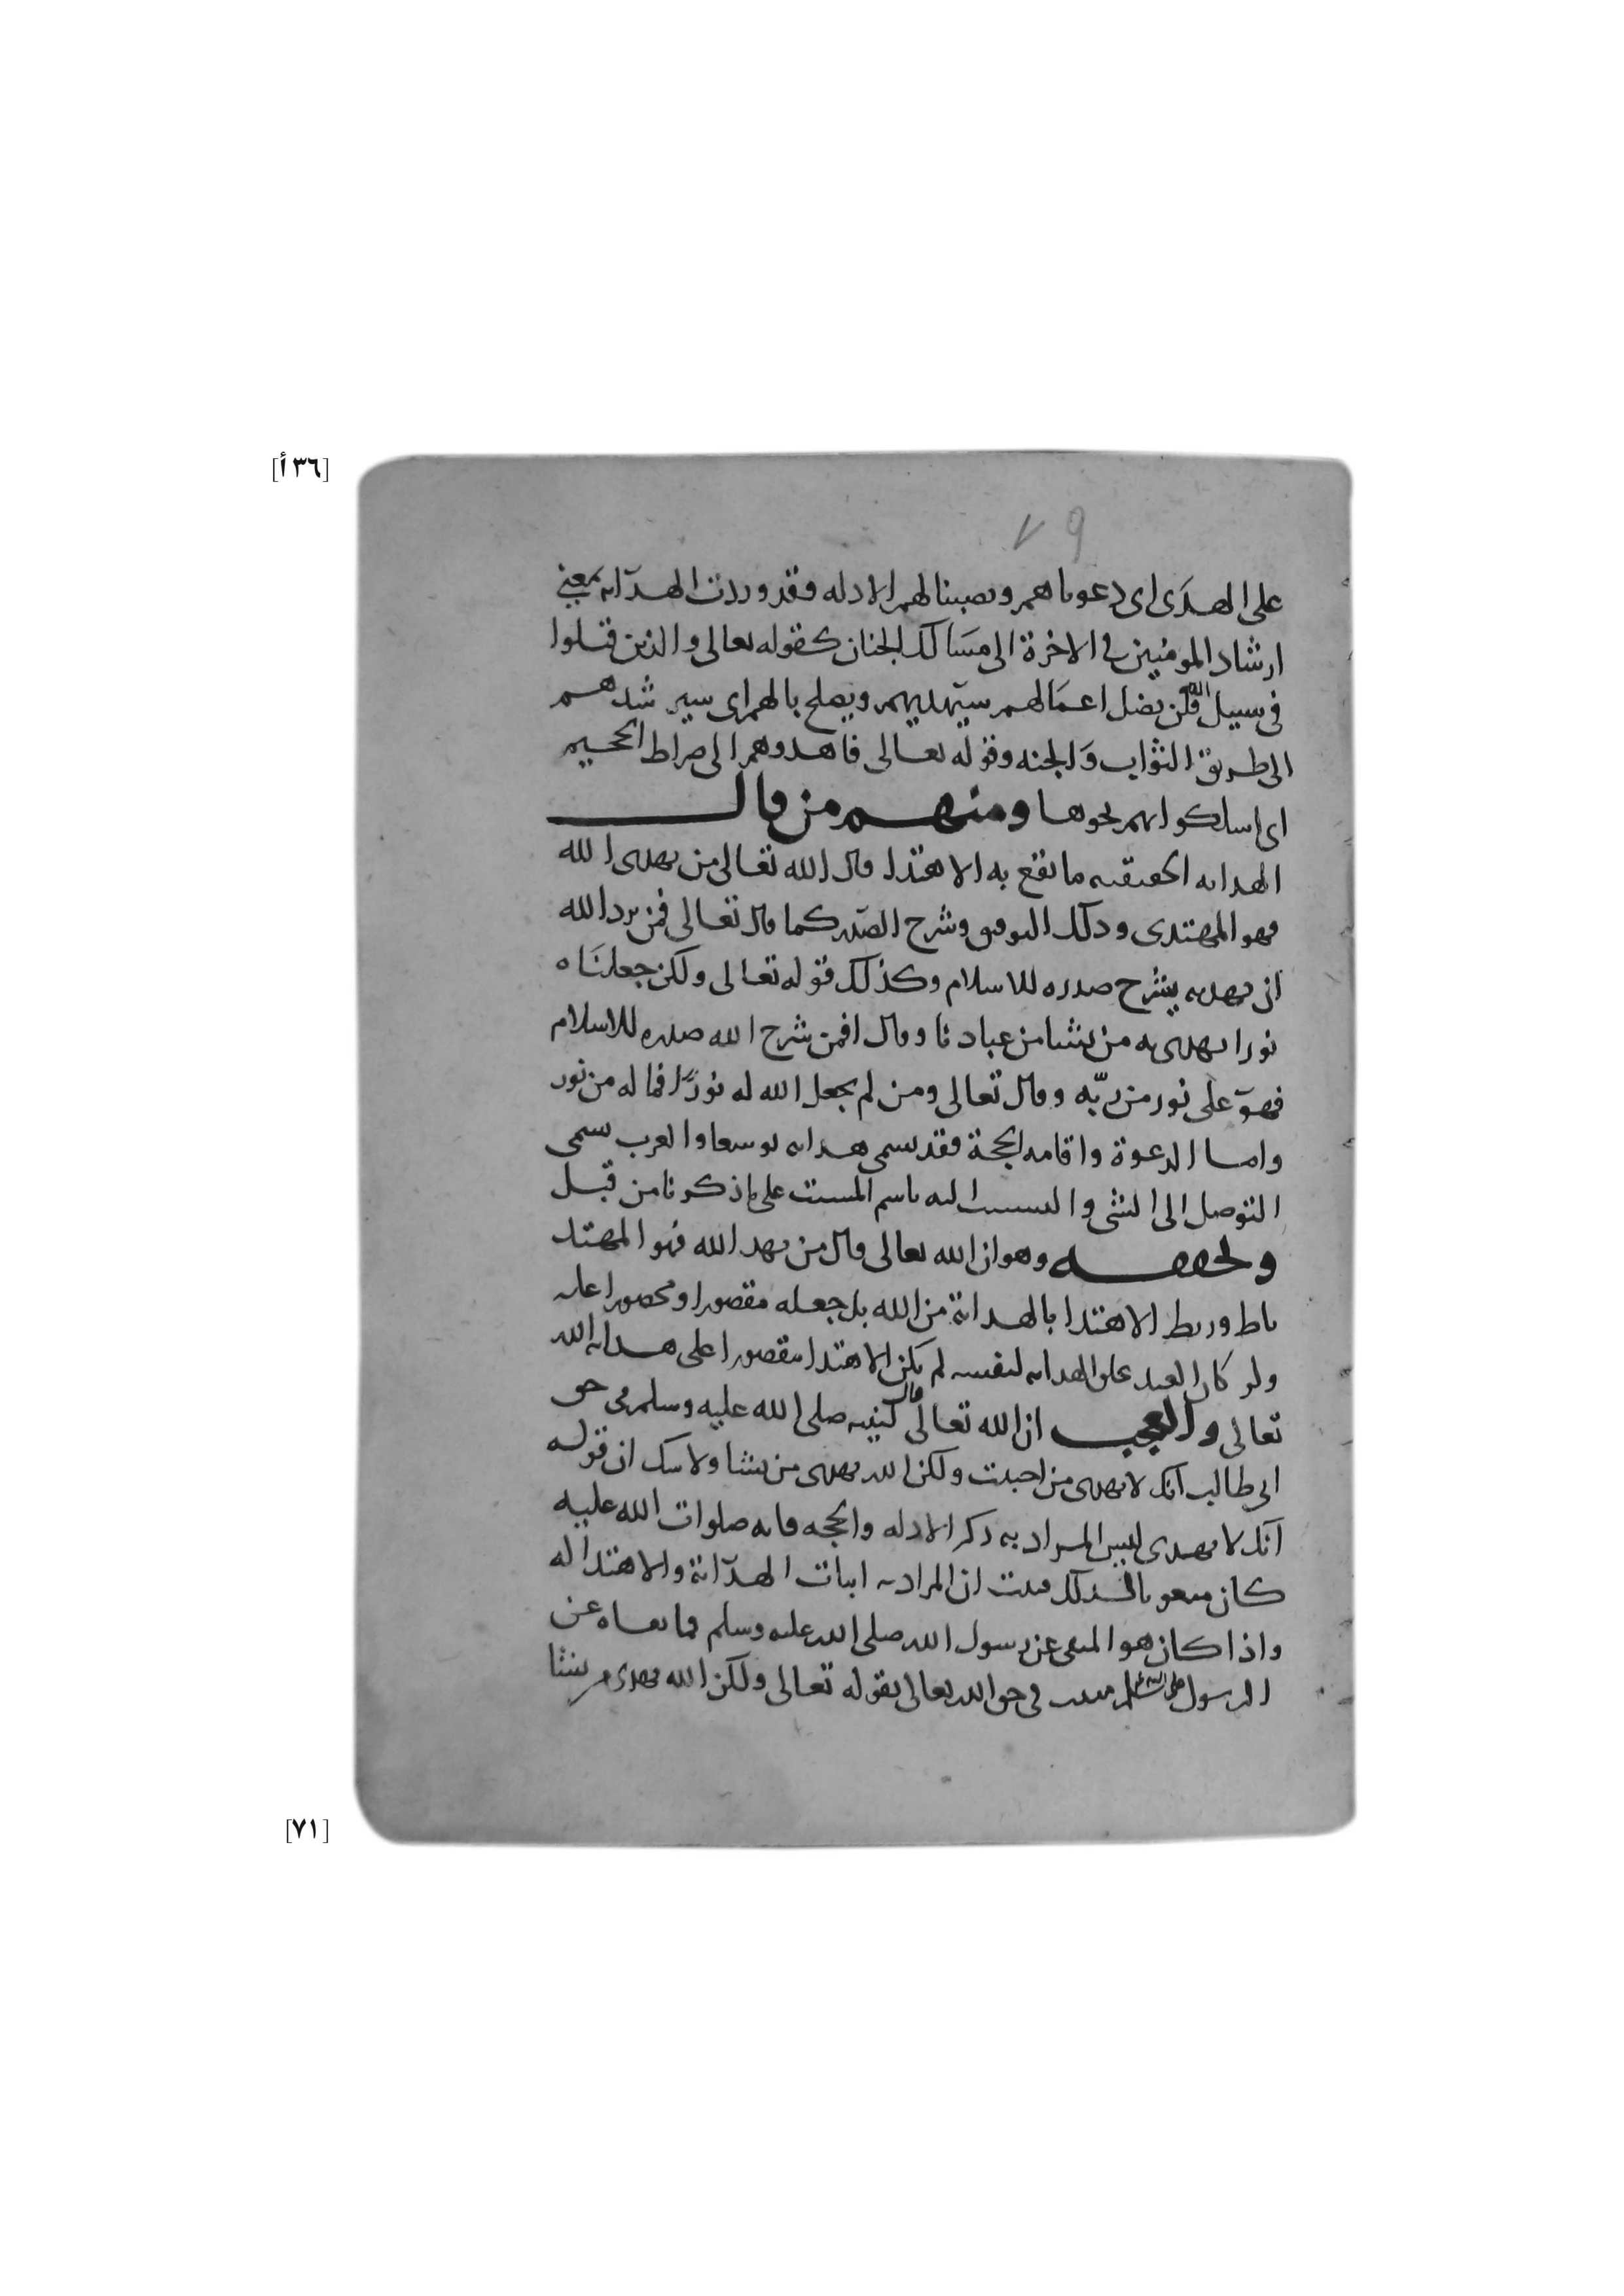 [٣٦ أ]
٧٩
على الهدى اى دعوناهم ونصبنا لهم الادله وقد وردت الهداية بمعنى
ارشاد المومنين فى الاخرة الى مسالك الجنان كقوله تعالى والذين قتلوا
فى سبيل الله فلن يضل اعمالهم سيهديهم ويصلح بالهم اى سير شدهم
الى طريق الثواب والجنه وقوله تعالى فاهدوهم الى صراط الجحيم
اى اسلكوا بهم نحوها ومنهم من قال
الهدايه الحقيقيه ما تقع به الاهتدا قال الله تعالى من يهدى الله
فهو المهتدى وذلك التوفيق وشرح الصدر كما قال تعالى فمن يرد الله
ان يهديه يشرح صدره للاسلام وكذلك قوله تعالى ولكن جعلناه
نورا يهدى به من يشا من عبادنا وقال افمن شرح الله صدره للاسلام
فهو على نور من ربه وقال تعالى ومن لم يجعل الله له نورا فما له من نور
واما الدعوة واقامه الحجة فقد يسمى هدايه توسعا والعرب سمى
التوصل الى الشى والتسبب اليه باسم المسبب على ما ذكرنا من قبل
وتحقيقه وهو ان الله تعالى قال من يهد الله فهو المهتد
ناط وربط الاهتدا بالهداية من الله بل جعله مقصورا ومحصورا عليه
ولو كان العبد على الهدايه لنفسه لم يكن الاهتدا مقصورا على هدايه الله
تعالى والعجب ان الله تعالى قال لنبيه صلى الله عليه وسلم فى حق
ابى طالب انك لا تهدى من احببت ولكن الله يهدى من يشا ولا شك ان قوله
انك لا تهدى ليس المراد به ذكر الادله والحجه فانه صلوات الله عليه
كان مبعوثا لذلك فثبت ان المراد به اثبات الهداية والاهتدا له
واذا كان هو المنفى عن رسول الله صلى الله عليه وسلم فما نفاه عن
الرسول صلى الله عليه وسلم فى حق الله تعالى بقوله تعالى ولكن الله يهدى من يشا
[٧١]